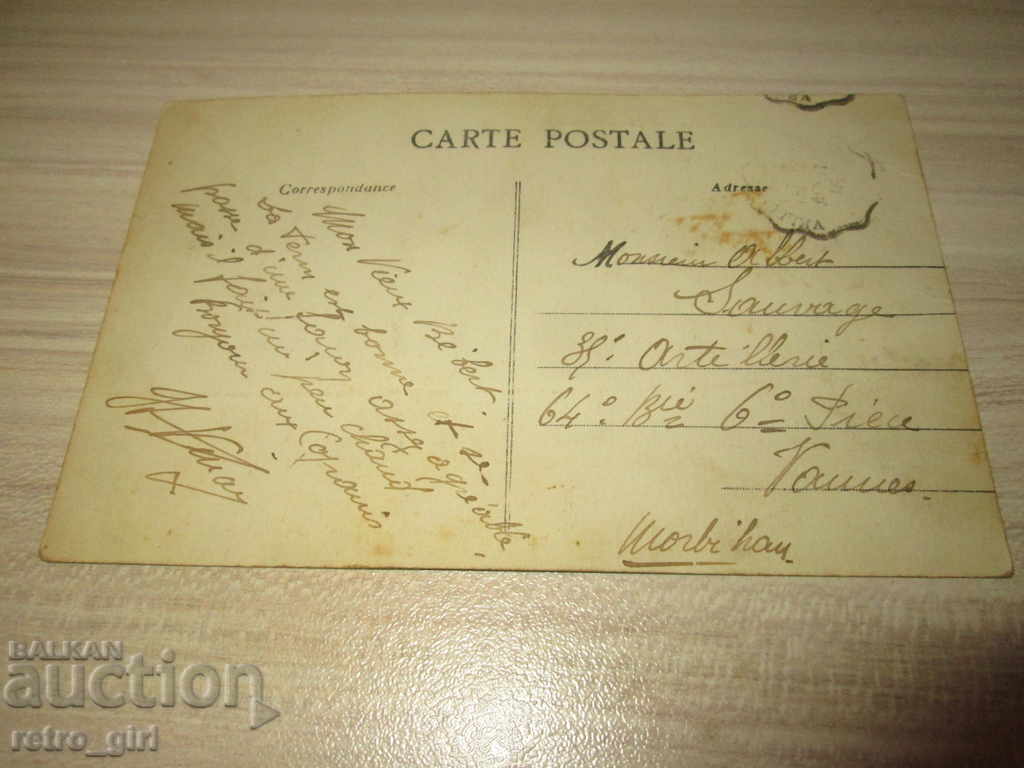 CARTE POSTALE
Correspondance
Mon Vieux Bébert.
La Term est bonne et se
passe d'une façon assez agréable.
mais il fait un peu chaud
Bonjour aux Copains
Adresse
Monsieur Albert
Sauvage
Artillerie
64e Bie 6e Pièce
Vannes
Morbihan
BALKAN
auction
retro_girl